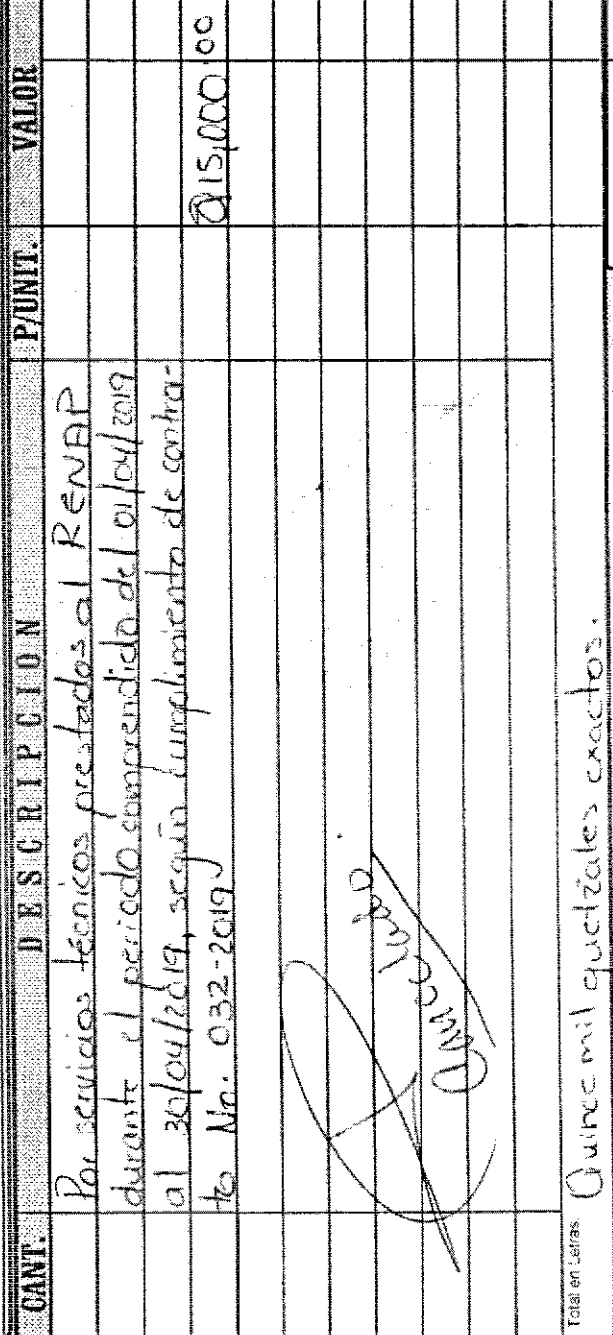 CANT. DESCRIPCION P/UNIT. VALOR
Por servicios técnicos prestados al RENAP
durante el periodo comprendido del 01/04/2019
al 30/04/2019, según cumplimiento de contra-
to No. 032-2019 Q15,000.00
Cancelado
Total en Letras: Quince mil quetzales exactos.